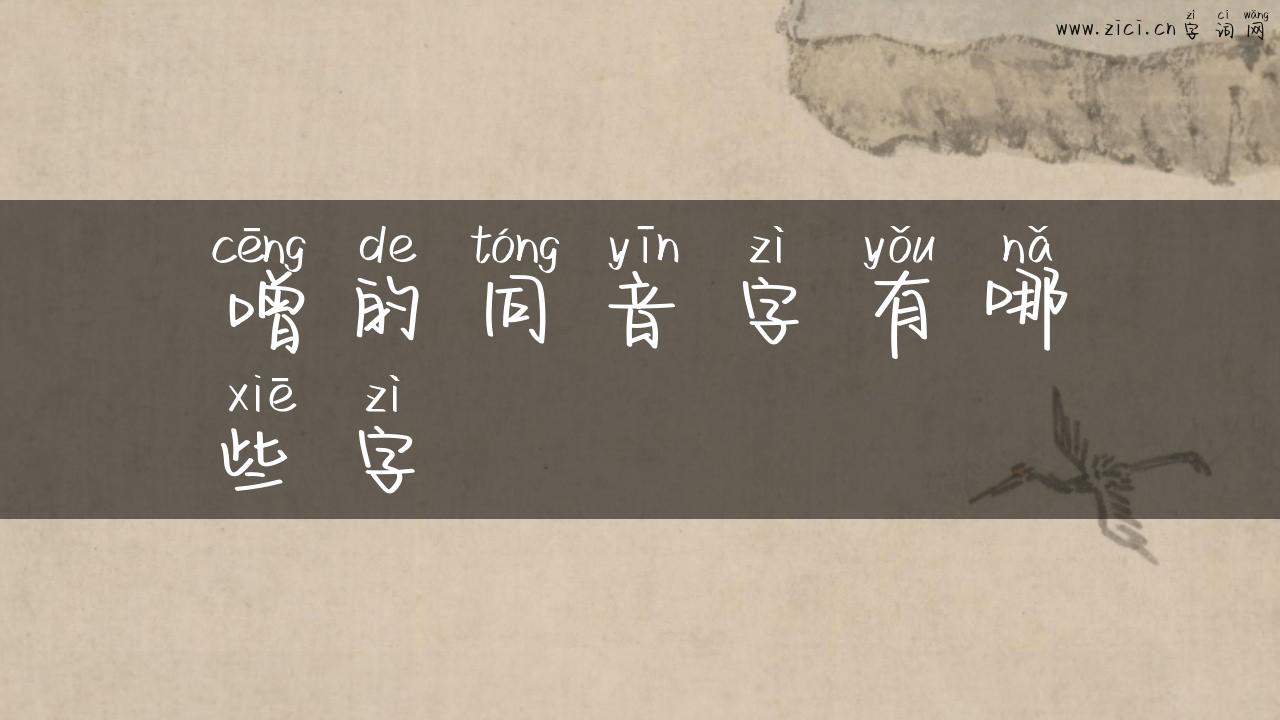 zì cí wǎng
www.zici.cn 字 词 网
cēng de tóng yīn zì yǒu nǎ
噌 的 同 音 字 有 哪
xiē zì
些 字